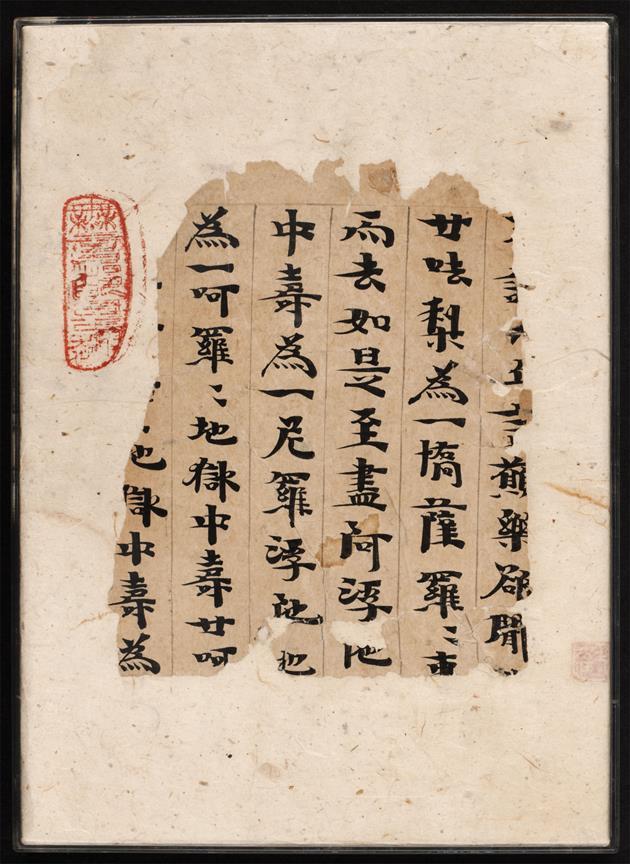 樂欲聞
廿呿梨為一憍薩羅〻車
而去如是至盡阿浮地
中壽為一尼羅浮地地
為一呵羅〻地獄中壽廿呵
地獄中壽為